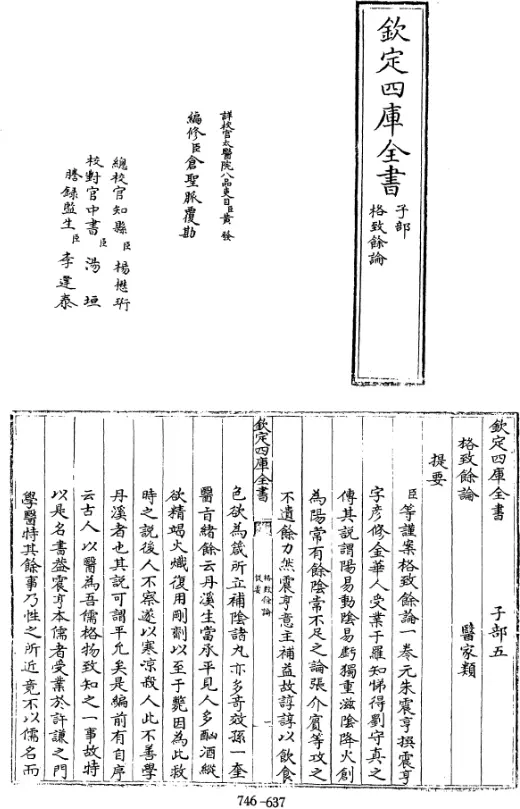 欽定四庫全書
子部
格致餘論
詳校官太醫院八品吏目臣黃發
編修臣倉聖脈覆勘
總校官知縣臣楊懋珩
校對官中書臣湯垣
謄錄監生臣李運泰
欽定四庫全書
子部五
格致餘論
醫家類
提要
臣等謹案格致餘論一卷元朱震亨撰震亨
字彥修金華人受業于羅知悌得劉守真之
傳其說謂陽易動陰易虧獨重滋陰降火創
為陽常有餘陰常不足之論張介賓等攻之
不遺餘力然震亨意主補益故諄諄以飲食
欽定四庫全書
格致餘論
提要
一
色欲為箴所立補陰諸丸亦多奇效孫一奎
醫旨緒餘云丹溪生當承平見人多酗酒縱
欲精竭火熾復用剛劑以至于斃因為此救
時之說後人不察遂以寒涼殺人此不善學
丹溪者也其說可謂平允矣是編前有自序
云古人以醫為吾儒格物致知之一事故特
以是名書蓋震亨本儒者受業於許謙之門
學醫特其餘事乃性之所近竟不以儒名而
746-637